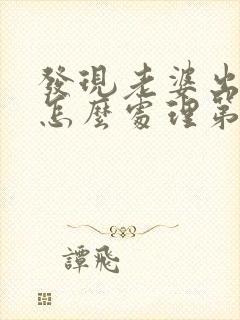 發現老婆出
怎麼處理第
譚飛